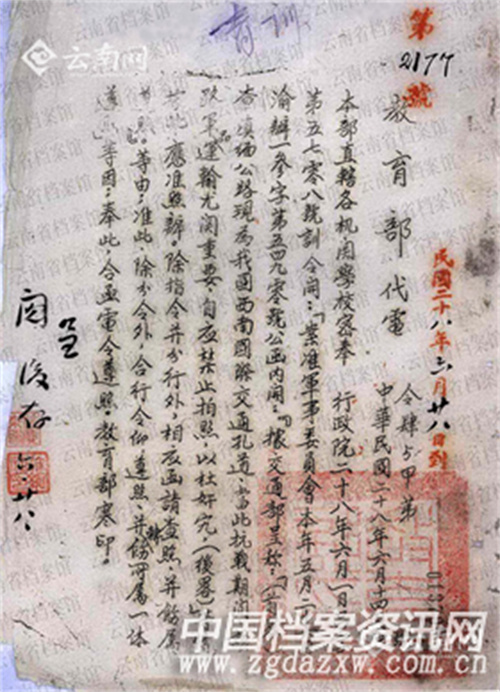 第
2177
號
教育部代電
民國二十八年六月廿八日到
令肆5甲第
中華民國二十八年六月十四
本部直轄各机関學校密奉 行政院二十八年六月一日
第五七零八號訓令開:「案准軍事委員會本年五月
渝辦一參字第五四九零號公函内開:『據交通部呈称:
查滇緬公路現為我國西南國際交通孔道,當此抗戰期間
軍運輸尤関重要,自應禁止拍照,以杜奸宄,(後畧)
應准照辦。除指令并分行外,相應函請查照,并飭屬
等由;准此,除分令外,合行令仰遵照,并轉飭所屬一体
遵照』等因。奉此,合亟電令遵照。教育部寒印。
閱後存
六.廿八
云南网
云南省档案馆
中国档案资讯网
www.zgdazxw.com.cn